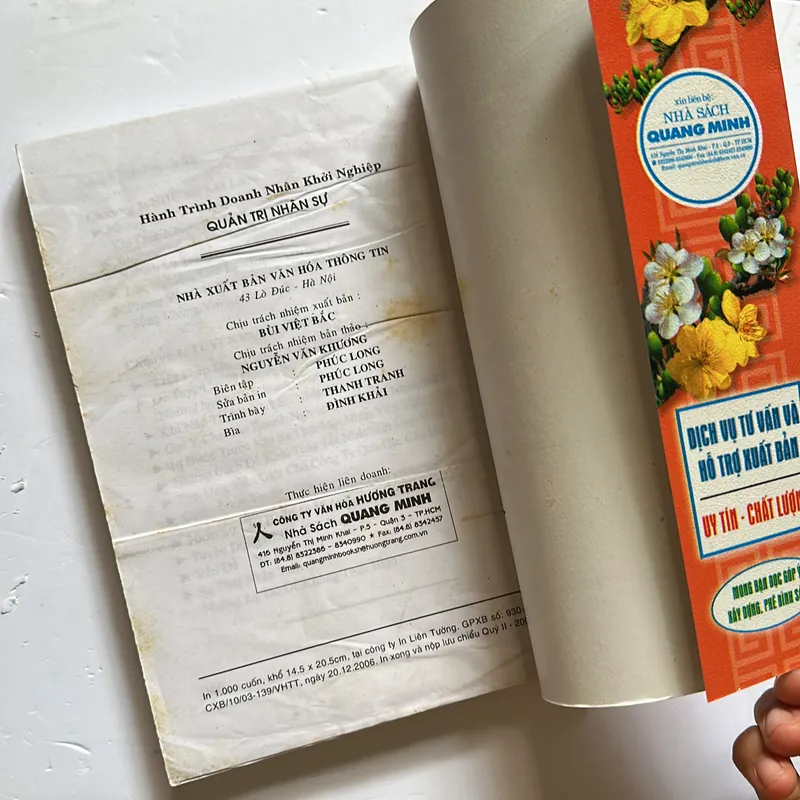 Hành Trình Doanh Nhân Khởi Nghiệp
QUẢN TRỊ NHÂN SỰ
NHÀ XUẤT BẢN VĂN HÓA THÔNG TIN
43 Lò Đúc - Hà Nội
Chịu trách nhiệm xuất bản :
BÙI VIỆT BẮC
Chịu trách nhiệm bản thảo :
NGUYỄN VĂN KHƯƠNG
Biên tập : PHÚC LONG
Sửa bản in : PHÚC LONG
Trình bày : THANH TRÁNH
Bìa : ĐÌNH KHẢI
Thực hiện liên doanh:
CÔNG TY VĂN HÓA HƯƠNG TRANG
Nhà Sách QUANG MINH
416 Nguyễn Thị Minh Khai - P.5 - Quận 3 - TP.HCM
ĐT: (84.8) 8322386 - 8340990 ★ Fax: (84.8) 8342457
Email: quangminhbooksh@huongtrang.com.vn
In 1.000 cuốn, khổ 14.5 x 20.5cm, tại công ty In Liên Tường. GPXB số: 930-
CXB/10/03-139/VHTT, ngày 20.12.2006. In xong và nộp lưu chiểu Quý II - 200
xin liên hệ:
NHÀ SÁCH
QUANG MINH
416 Nguyễn Thị Minh Khai - P.5 - Q.3 - TP.HCM
DỊCH VỤ TƯ VẤN VÀ
HỖ TRỢ XUẤT BẢN
UY TÍN - CHẤT LƯỢN
MONG BẠN ĐỌC GÓP Ý
XÂY DỰNG, PHÊ BÌNH